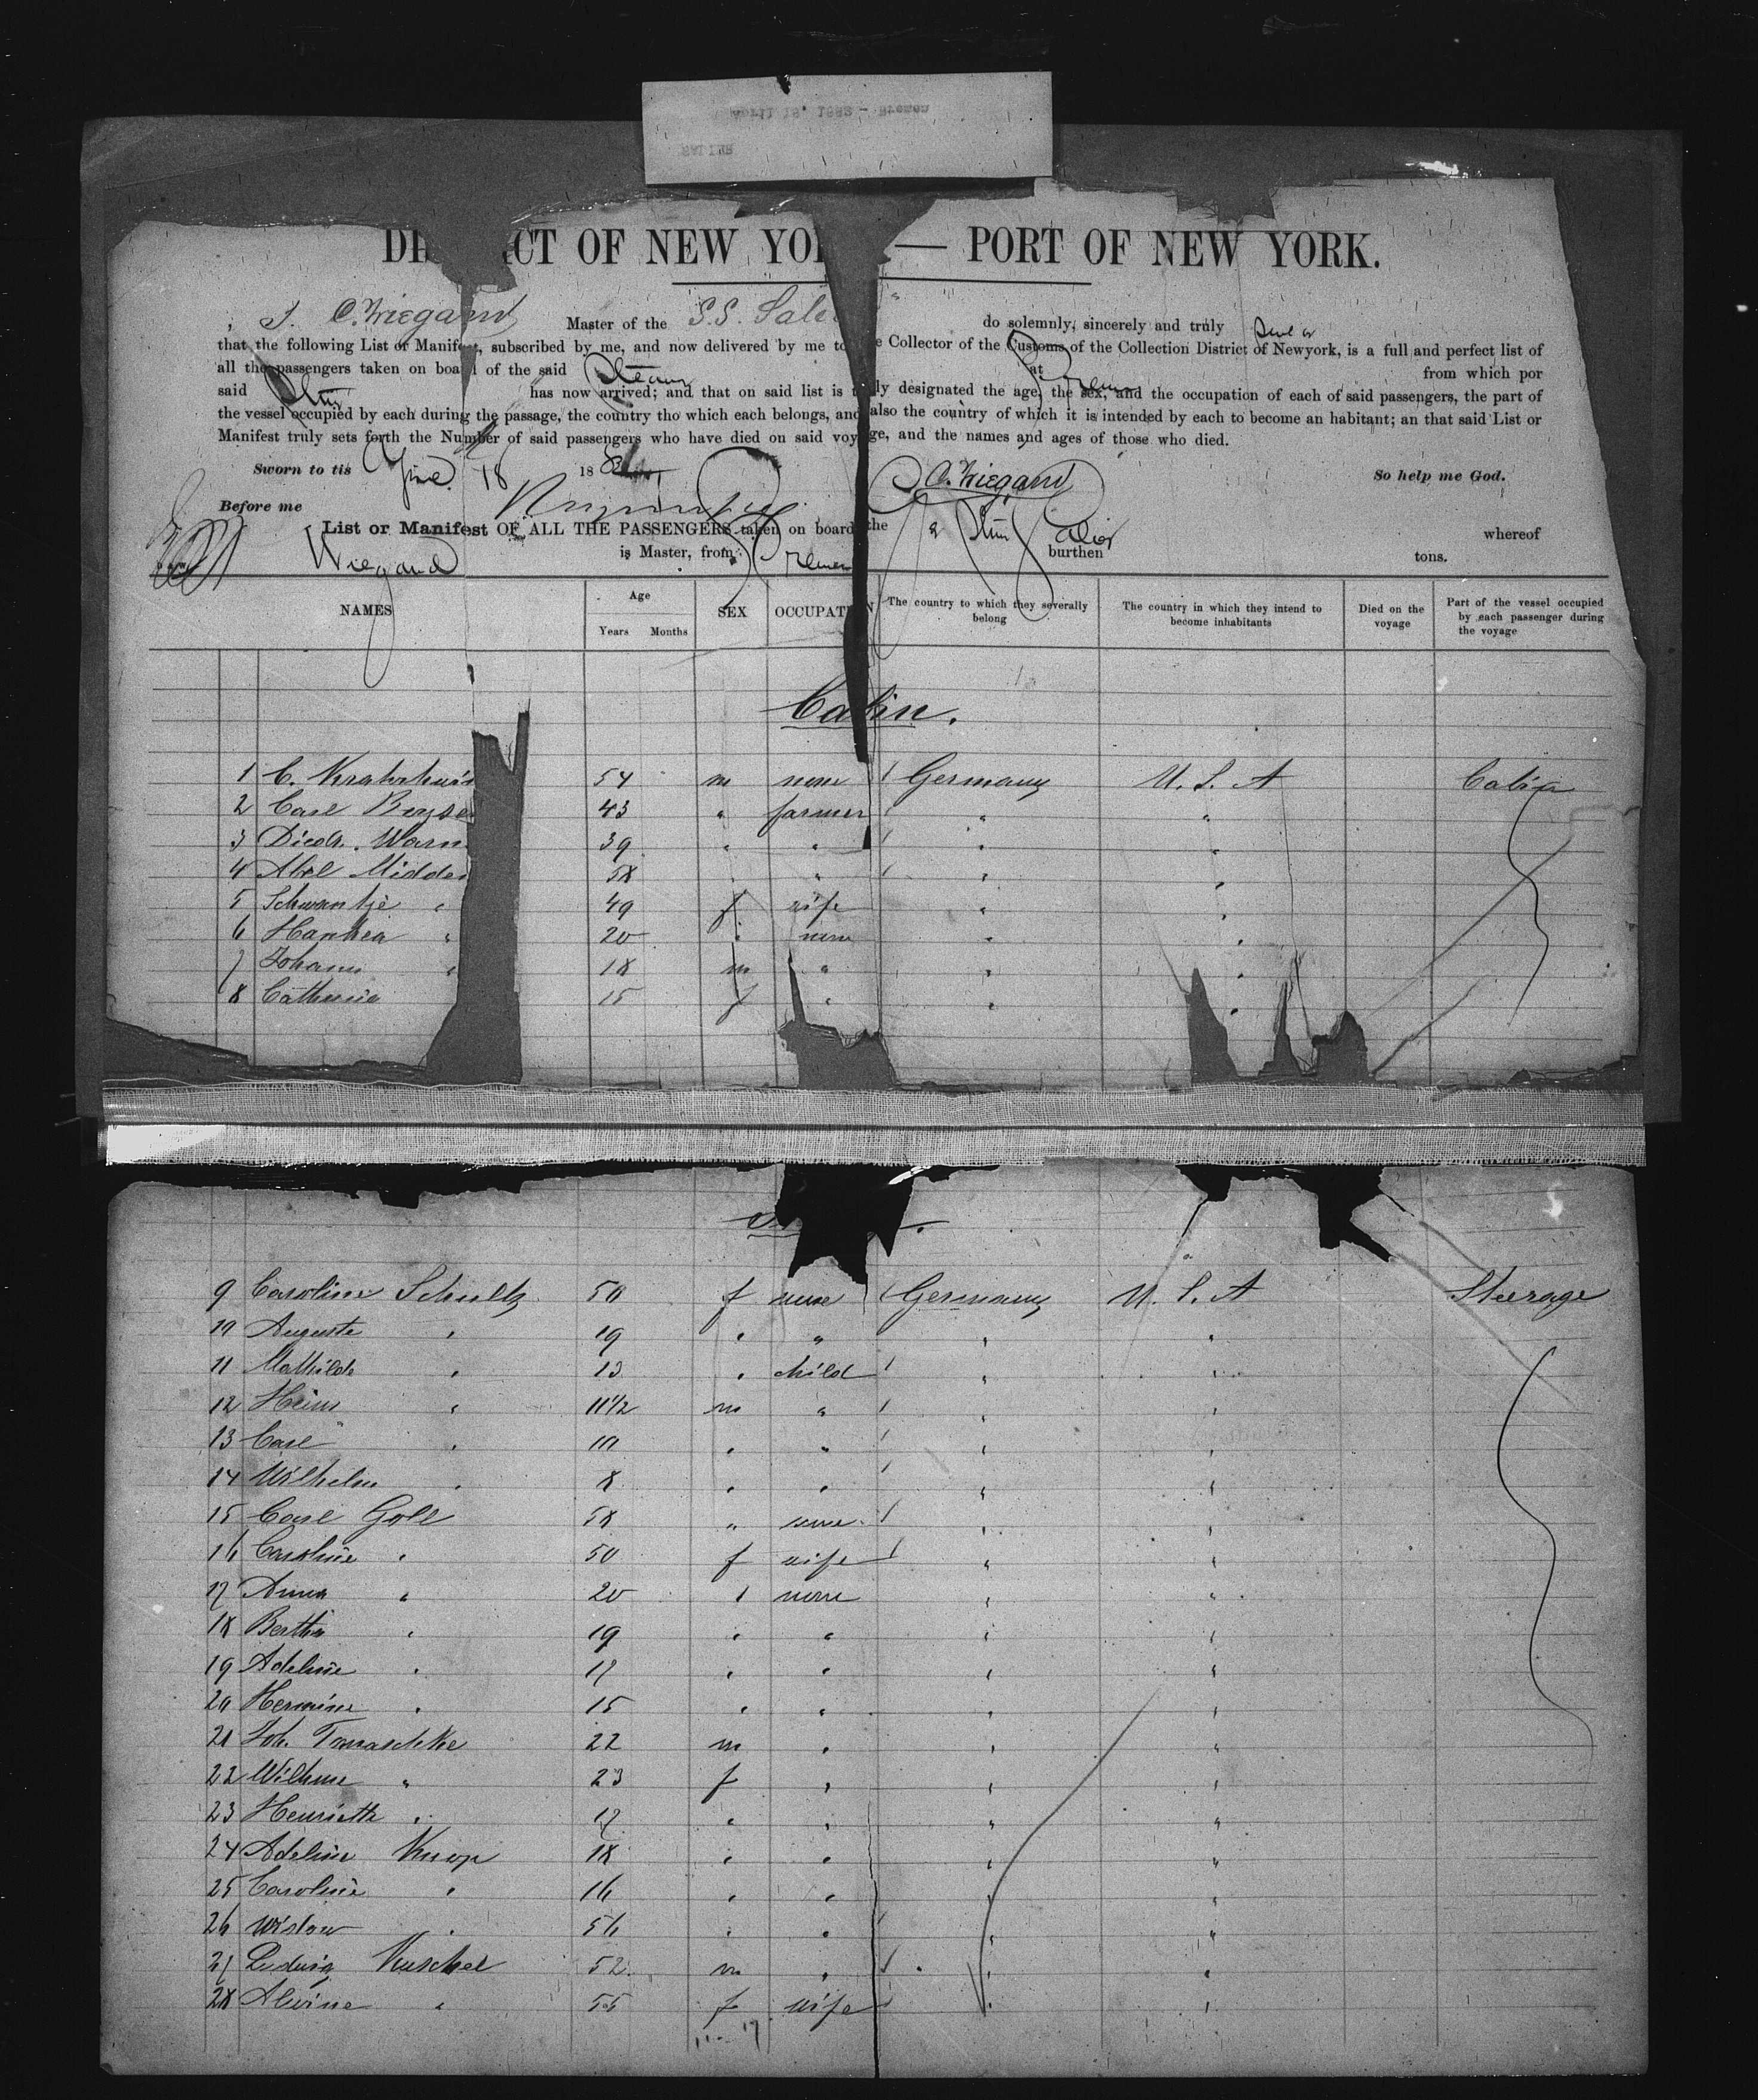 April 18, 1882 - Bremen
SALIER
CT OF NEW YO — PORT OF NEW YORK.
I. C. Wiegand Master of the S.S. Sal do solemnly, sincerely and truly
that the following List or Manifest, subscribed by me, and now delivered by me to e Collector of the Customs of the Collection District of Newyork, is a full and perfect list of
all the passengers taken on board of the said Steam at Bremen from which por
said has now arrived; and that on said list is ly designated the age, the sex, and the occupation of each of said passengers, the part of
the vessel occupied by each during the passage, the country tho which each belongs, and also the country of which it is intended by each to become an habitant; an that said List or
Manifest truly sets forth the Number of said passengers who have died on said voyage, and the names and ages of those who died.
Sworn to tis 18 188 C. Wiegand So help me God.
Before me
List or Manifest OF ALL THE PASSENGERS taken on board the Salier whereof
Wiegand is Master, from Bremen burthen tons.
NAMES Age Years Months SEX OCCUPAT N The country to which they severally belong The country in which they intend to become inhabitants Died on the voyage Part of the vessel occupied by each passenger during the voyage
Cabin.
1 C. 54 m none / Germany U. S. A Cabin
2 Carl 43 " farmer " "
3 Diedr. Warn 39 " " / " "
4 Abel Midde 58 " " / " "
5 Schwantje " 49 f wife " "
6 " 20 " none " "
7 Johann " 18 m " " "
8 Catharina 15 f " " "
9 Caroline Schultz 50 f none / Germany U. S. A Steerage
10 Auguste " 19 " " " "
11 Mathilde " 13 " child / " "
12 Heinr " 11 1/2 m " / " "
13 Carl " 10 " " / " "
14 Wilhelm " 8 " " / " "
15 Carl Goll 58 " none / " "
16 Caroline " 50 f wife / " "
17 Anna " 20 " none " "
18 Bertha " 19 " " " "
19 Adeline " 17 " " " "
20 Hermine " 15 " " " "
21 Joh. 22 m " " "
22 Wilhme " 23 f " " "
23 Henriette " 17 " " " "
24 Adeline Knop 18 " " " "
25 Caroline " 16 " " " "
26 " 56 " " / " "
27 Ludwig Kuschel 52 m " / " "
28 Alvine " 55 f wife / " "